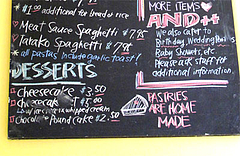 $1.00 additional for bread or rice
Meat Sauce Spaghetti $7.95
Tarako Spaghetti $7.95
* all pastas include garlic toast!
DESSERTS
Cheesecake $3.50
cheesecake $5.00
w/ ice cream or whipped cream
chocolate Pound cake 2.50
MORE ITEMS
AND++
We also cater to
Birthday, Wedding
Bridal Showers, etc.
Please ask staff for
additional information.
PASTRIES
ARE HOME
MADE